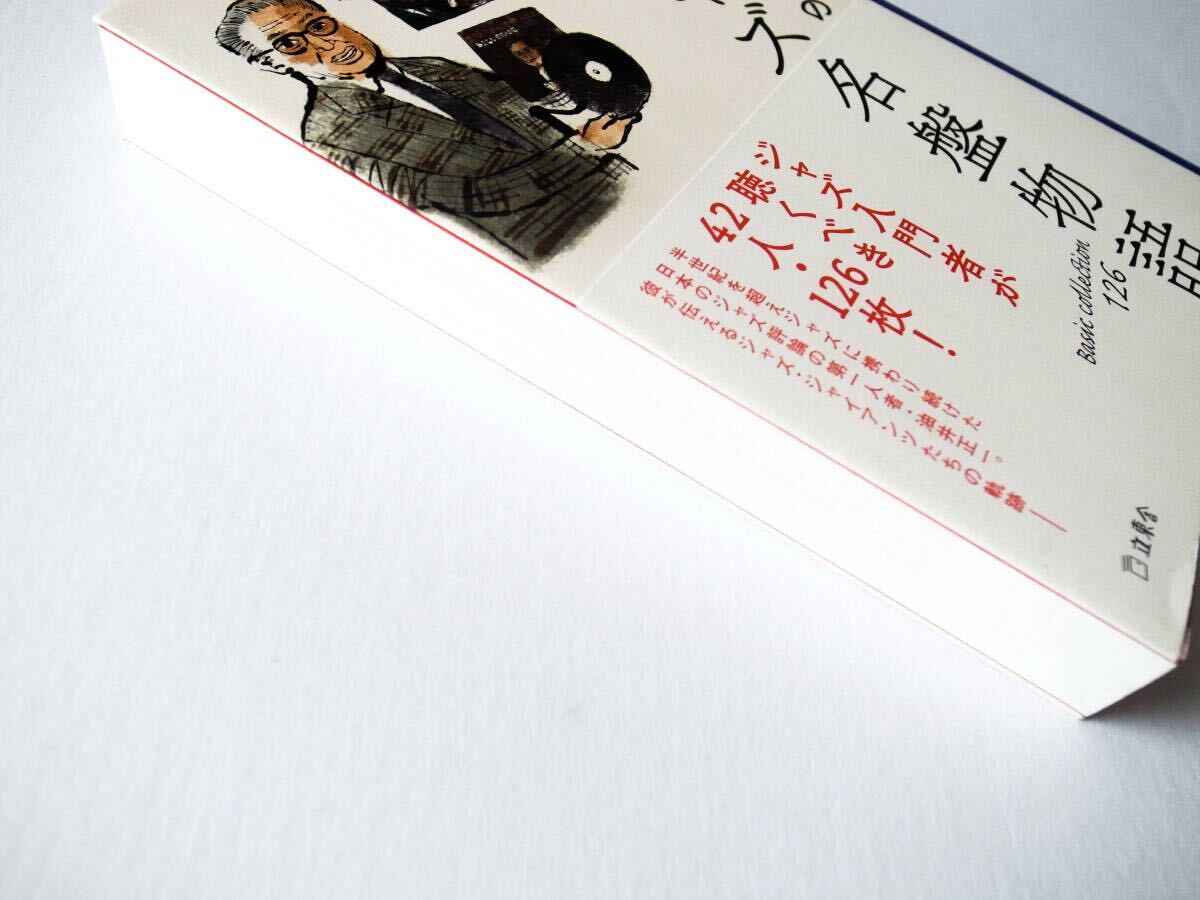 ズの
名盤物語
Basic collection
126
ジャズ入門者が
聴くべき
42人・126枚!
半世紀を超えジャズに携わり続けた
日本のジャズ評論の第一人者・油井正一。
彼が伝えるジャズ・ジャイアンツたちの軌跡――
立東舎